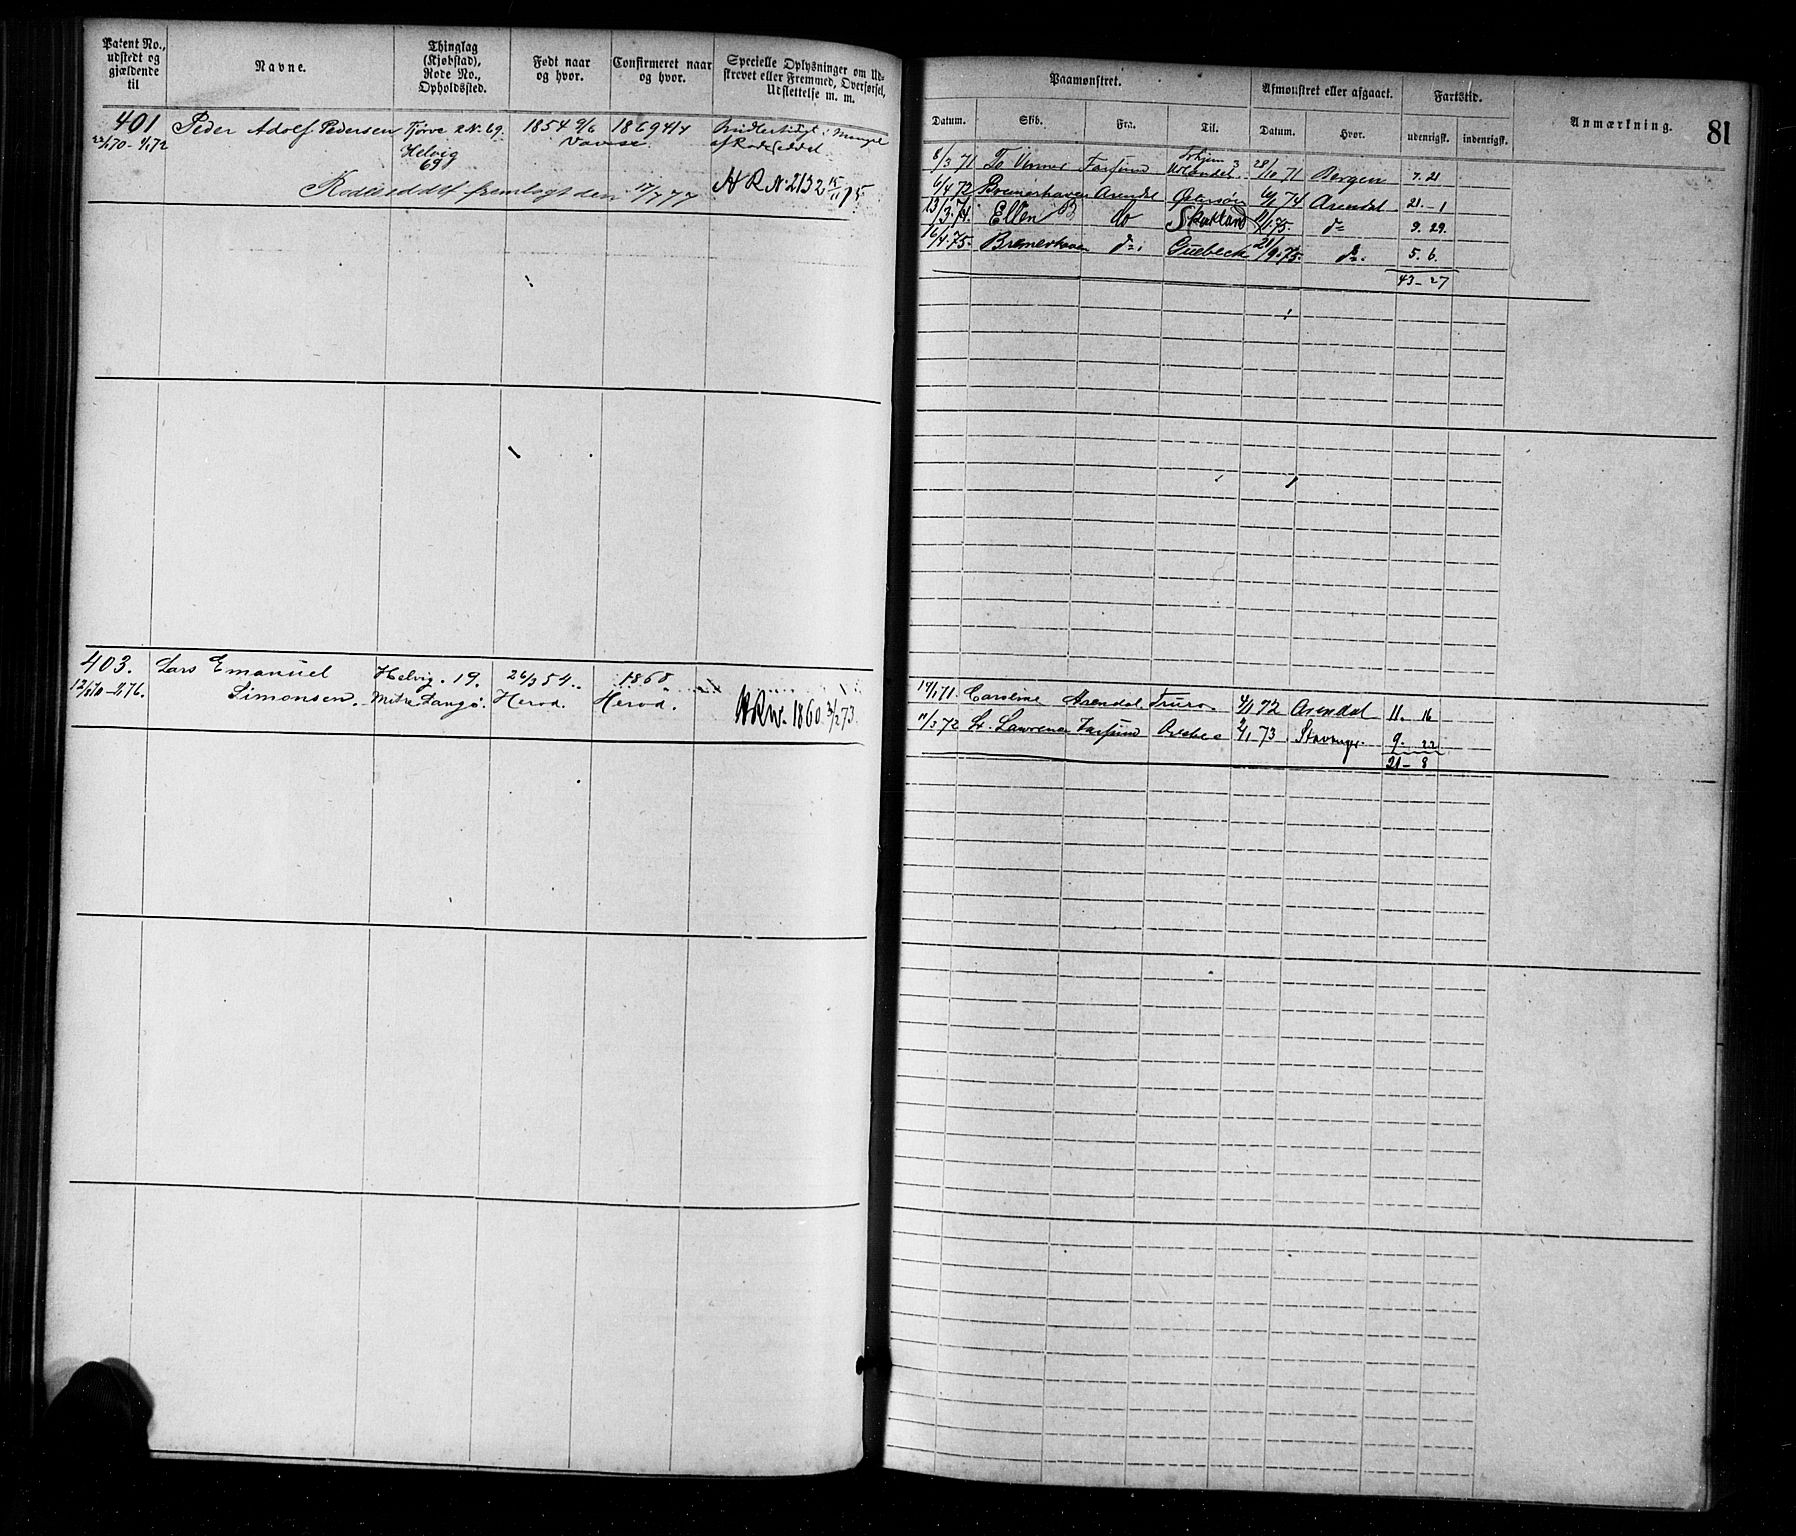 Patent No.,
udstedt og
gjældende
til
Navne.
Thinglag
(Kjøbstad),
Rode No.,
Opholdssted.
Født naar
og hvor.
Confirmeret naar
og hvor.
Specielle Oplysninger om Ud-
skrevet eller Fremmed, Overførsel,
Udslettelse m. m.
401
Peder Adolf Pedersen
Tjørve R N. 69.
Helvig
69
1854 9/6
1869 4/4
af Rodeseddel
Rodeseddel fremlagt den 17/7 77
H R N. 2132 15/11 75
403.
12/1 70 - 76.
Lars Emanuel
Simonsen.
Helvig. 19.
26/3 54.
Herod.
1868
Herod.
HRN. 1860 3/2 73.
81
Paamønstret.
Afmønstret eller afgaaet.
Fartstid.
Anmærkning.
Datum.
Skib.
Fra.
Til.
Datum.
Hvor.
udenrigsk.
indenrigsk.
8/3 71 To Venner Farsund 28/10 71 Bergen 7. 21
6/4 72 Bremerhaven Arendal Østersøn 6/1 74 Arendal 21 - 1
13/3 74. Ellen B do Skotland 11/1 75. do 9. 29.
16/4 75. Bremerhaven do. Quebeck 21/9 75. do. 5. 6.
43 - 27
14/1 71. Caroline Arendal Truro. 4/1 72 Arendal 11. 16
11/3 72 St. Lawrence Farsund 2/1 73 Stavanger. 9. 22
21 - 8